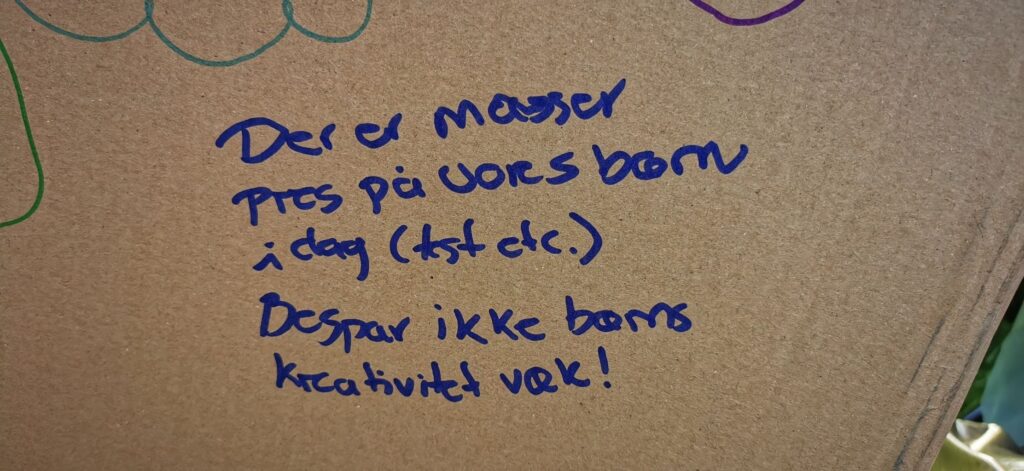 Der er masser
pres på vores børn
i dag (tst etc.)
Bespar ikke børns
kreativitet væk!